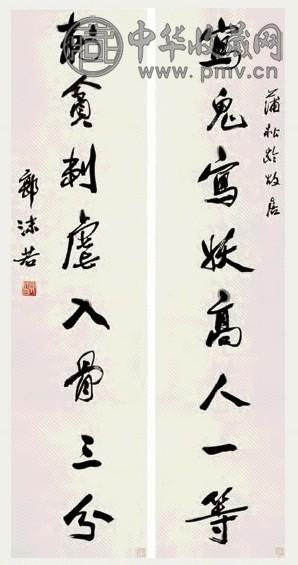 中华收藏网
www.pmv.cn
蒲松龄故居
寫鬼寫妖高人一等
刺貪刺虐入骨三分
郭沫若